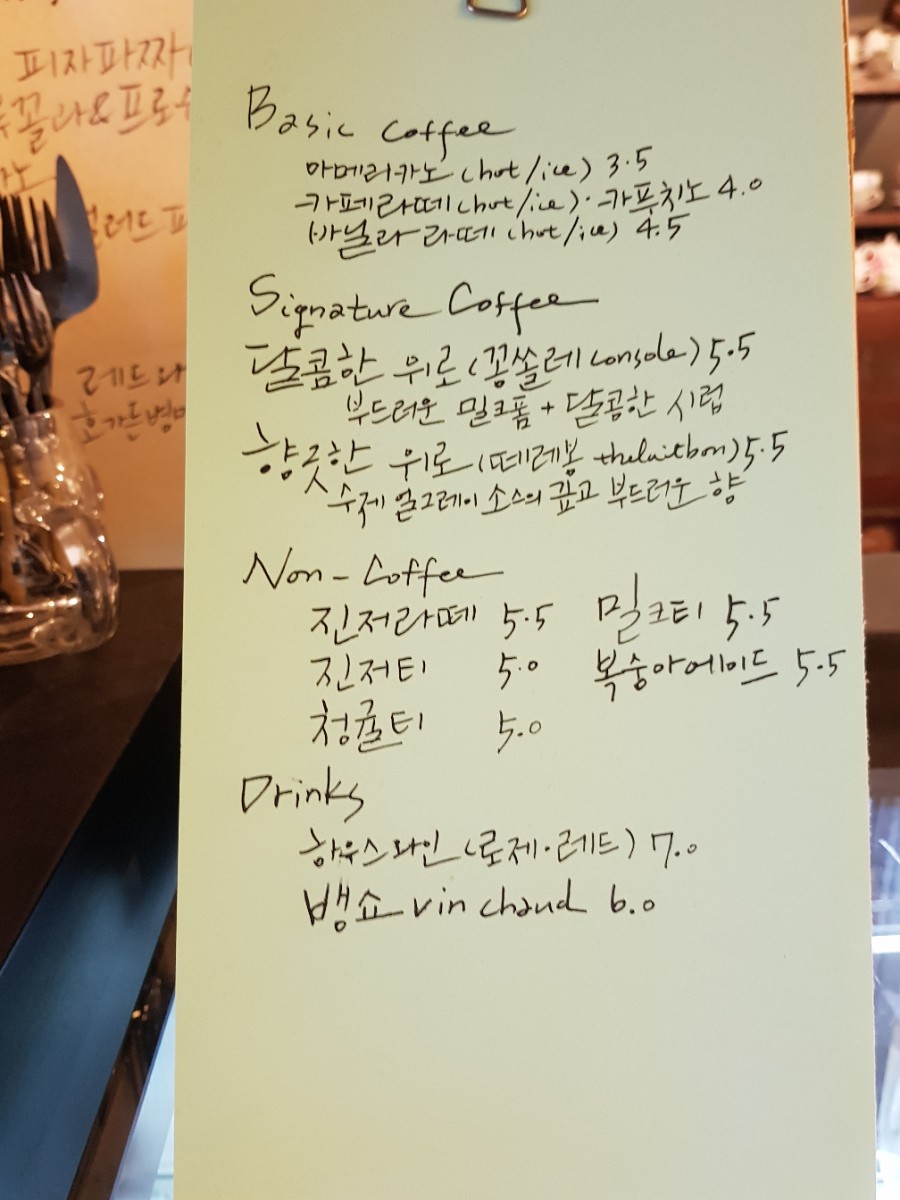 피자파짜
꼴라&프로슈
레드와
호가든병
Basic Coffee
아메리카노 (hot/ice) 3.5
카페라떼 (hot/ice)·카푸치노 4.0
바닐라 라떼 (hot/ice) 4.5
Signature Coffee
달콤한 위로 (꽁쏠레 console) 5.5
부드러운 밀크폼 + 달콤한 시럽
향긋한 위로 (떼레봉 thelaitbon) 5.5
수제 얼그레이 소스의 깊고 부드러운 향
Non-Coffee
진저라떼 5.5 밀크티 5.5
진저티 5.0 복숭아에이드 5.5
청귤티 5.0
Drinks
하우스와인 (로제·레드) 7.0
뱅쇼 vin chaud 6.0